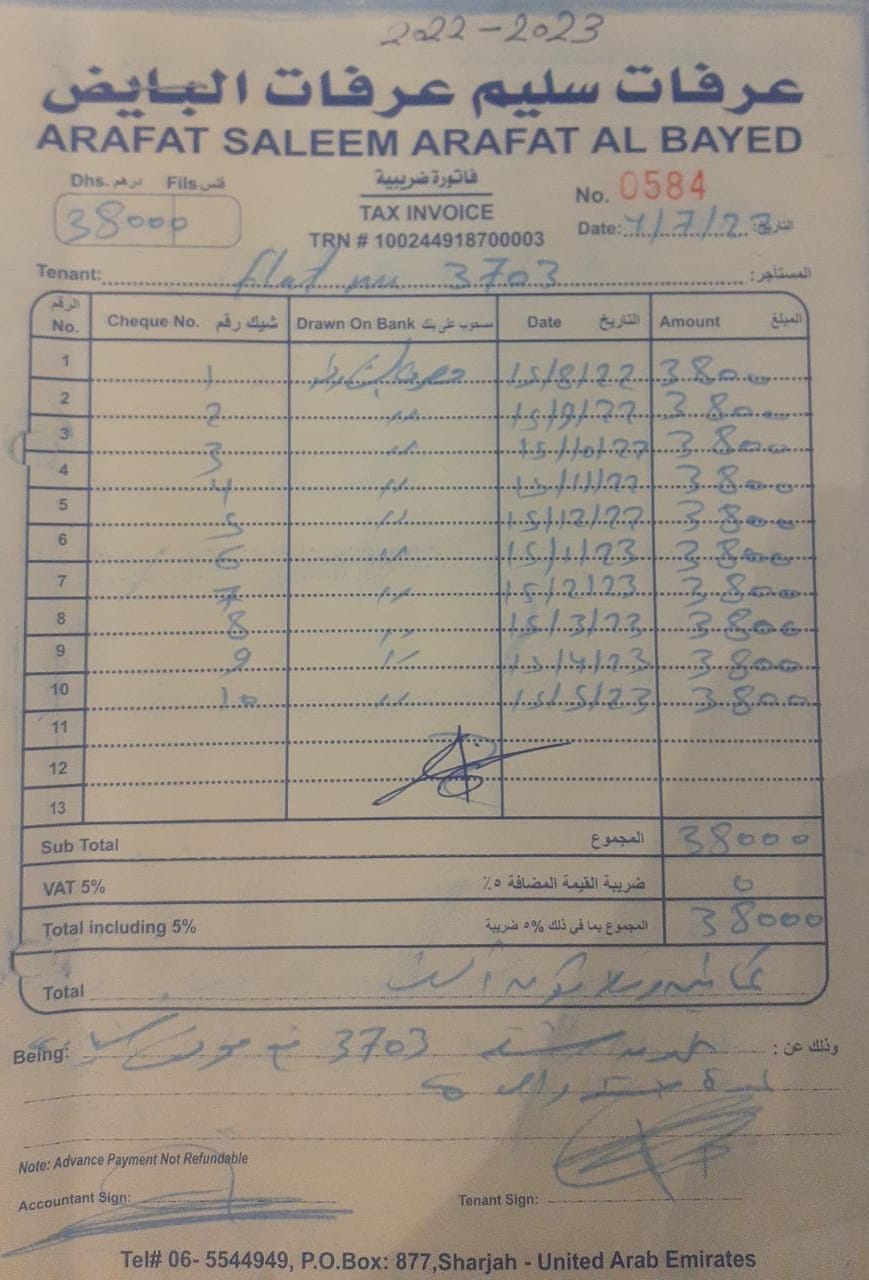 2022-2023
عرفات سليم عرفات البايض
ARAFAT SALEEM ARAFAT AL BAYED
Dhs. درهم Fils فلس
38000
فاتورة ضريبية
TAX INVOICE
TRN # 100244918700003
No. 0584
Date: /7/23 التاريخ:
Tenant: flat no 3703 المستأجر:
الرقم No. Cheque No. شيك رقم Drawn On Bank مسحوب على بنك Date التاريخ Amount المبلغ
1 1 15/8/22 3800
2 2 " 15/9/22 3800
3 3 " 15/10/22 3800
4 4 " 15/11/22 3800
5 5 " 15/12/22 3800
6 6 " 15/1/23 3800
7 7 " 15/2/23 3800
8 8 " 15/3/23 3800
9 9 " 15/4/23 3800
10 10 " 15/5/23 3800
11
12
13
Sub Total المجموع 38000
VAT 5% ضريبة القيمة المضافة ٥٪ 0
Total including 5% المجموع بما في ذلك ٥% ضريبة 38000
Total ثمانية وثلاثون ألف
Being: 3703 وذلك عن:
Note: Advance Payment Not Refundable
Accountant Sign: Tenant Sign:
Tel# 06- 5544949, P.O.Box: 877,Sharjah - United Arab Emirates